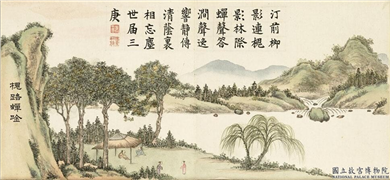 汀前柳
影連槐
影林際
蟬聲答
澗聲迭
響靜傳
清隂裏
相忘塵
世届三
庚
槐路蟬唫
國立故宮博物院
NATIONAL PALACE MUSEUM